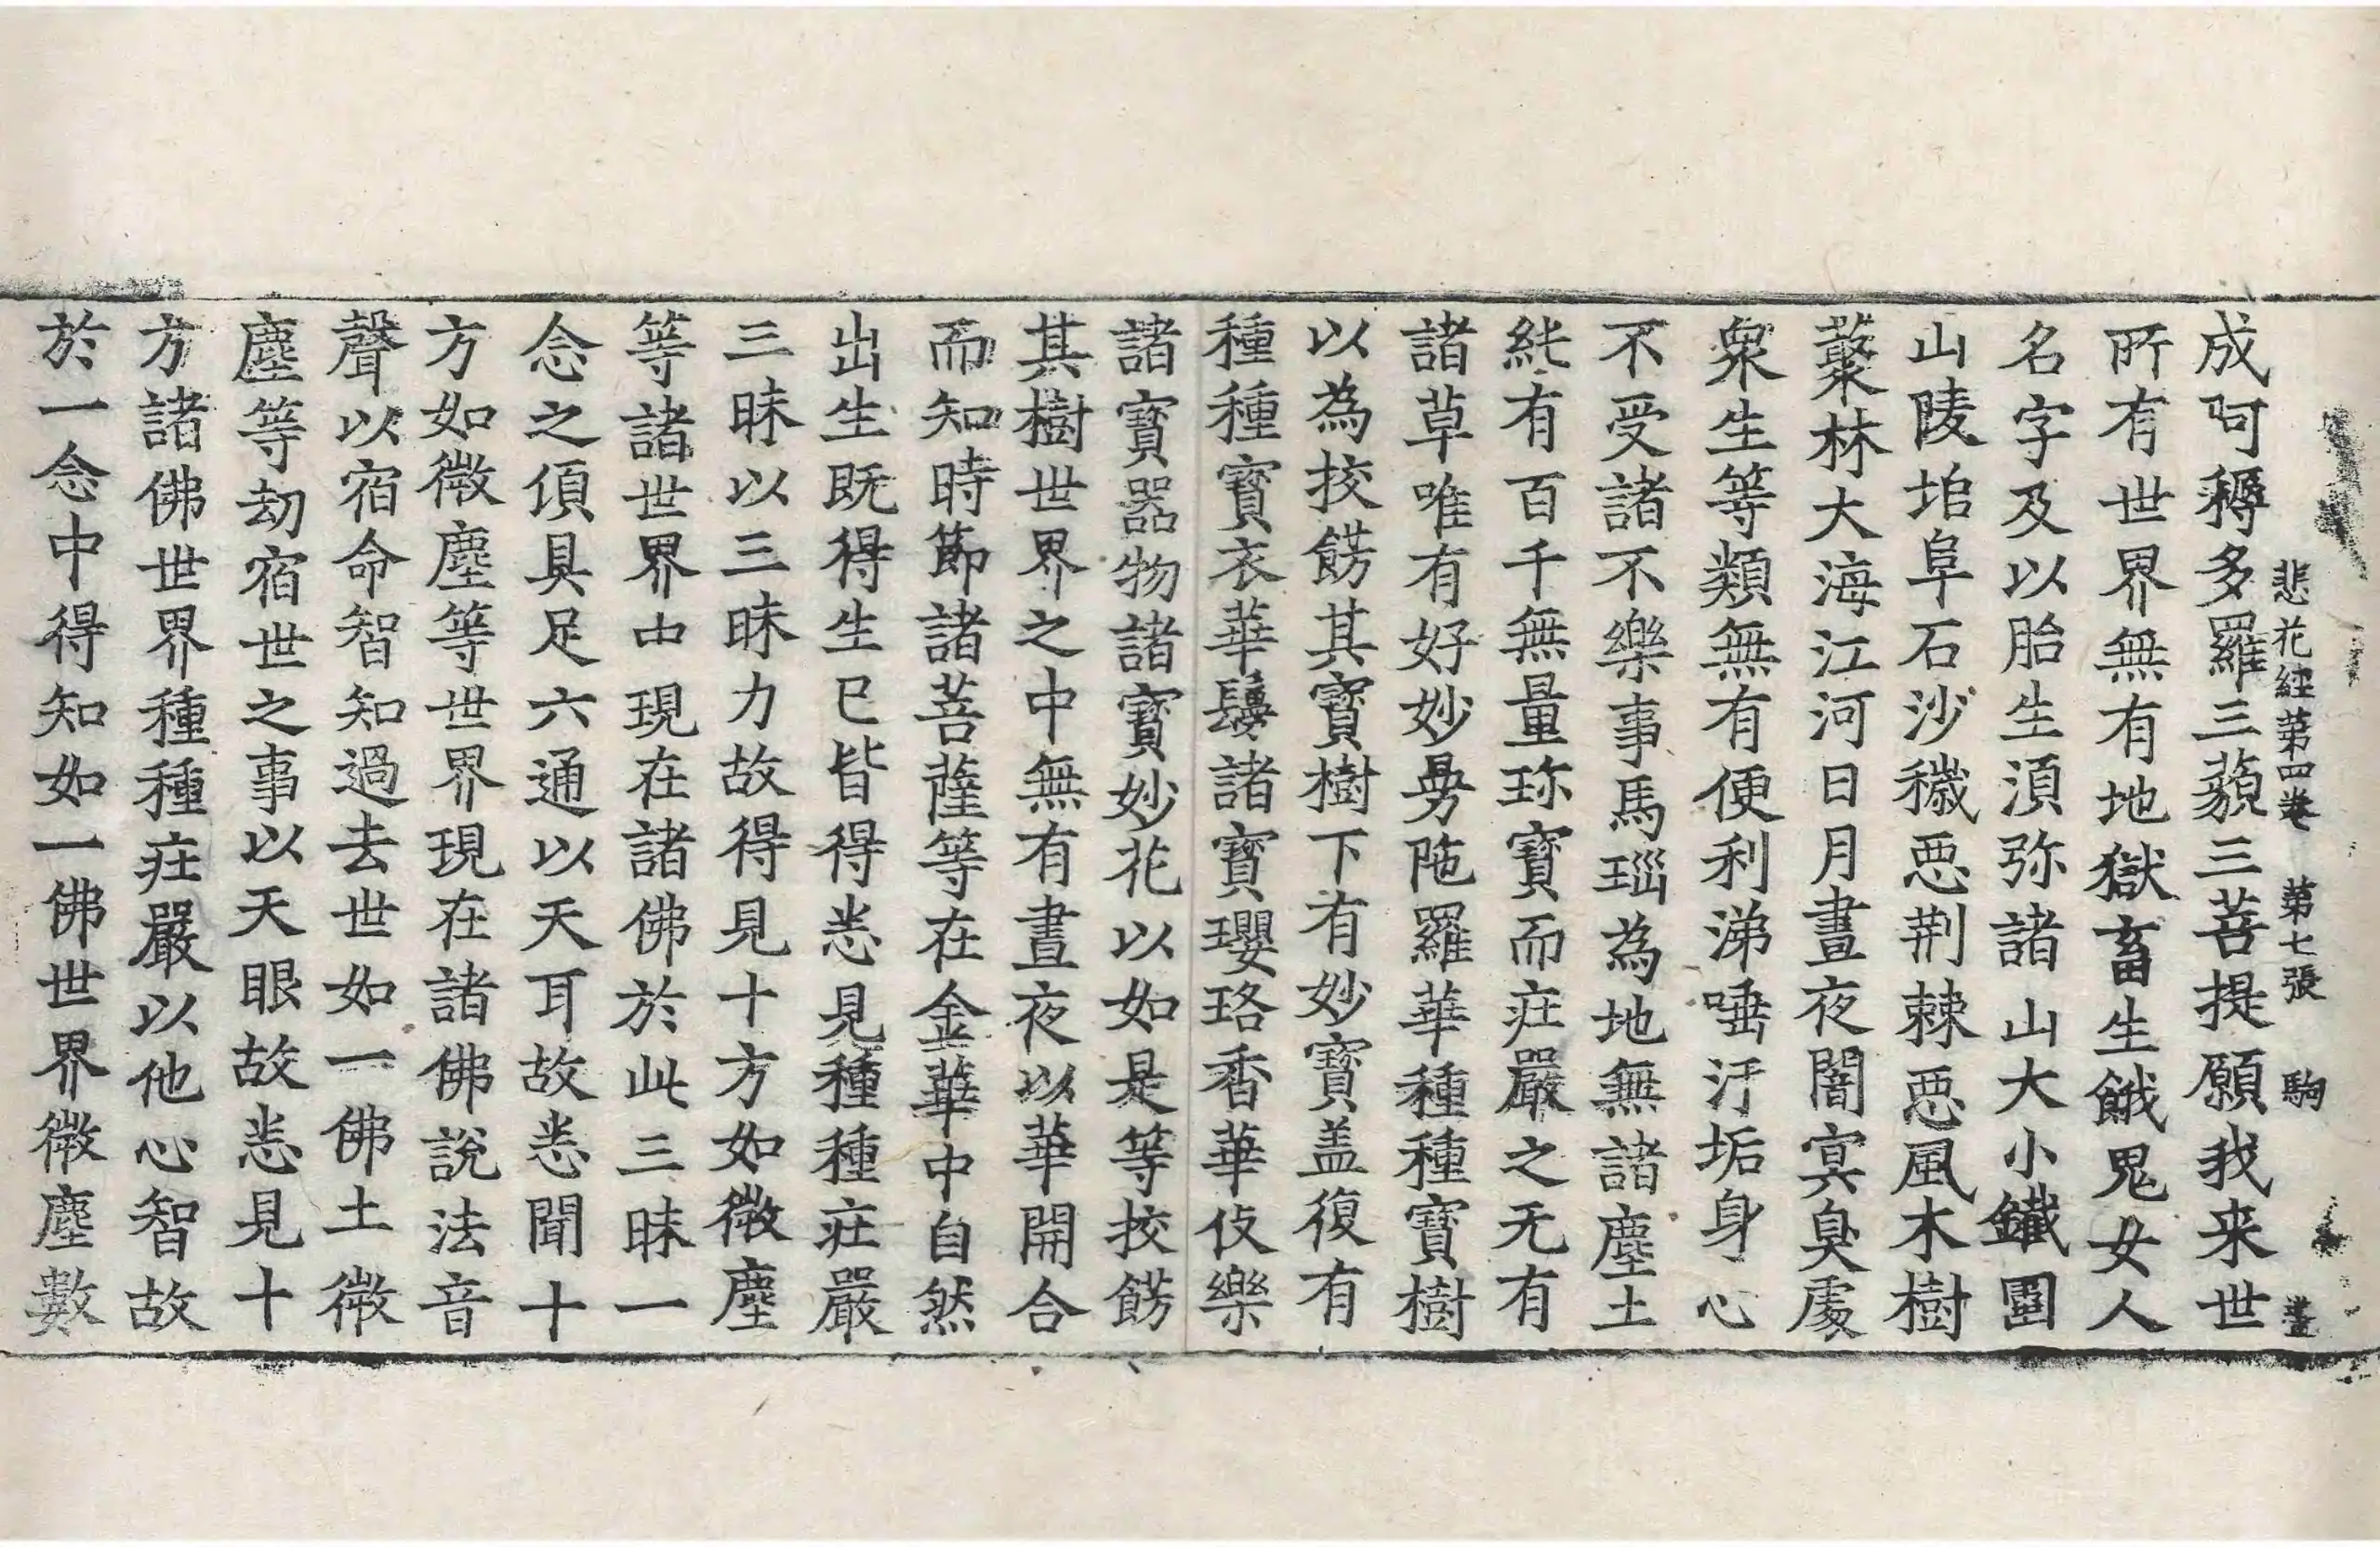 悲花經第四卷 第七張 駒
成阿耨多羅三藐三菩提願我来世
所有世界無有地獄畜生餓鬼女人
名字及以胎生湏弥諸山大小鐵圍
山陵埳阜石沙穢恶荆棘恶風木樹
藂林大海江河日月晝夜闇冥臭處
衆生等類無有便利涕唾汙垢身心
不受諸不樂事馬瑙為地無諸塵土
純有百千無量珎寶而疘嚴之无有
諸草唯有好妙曼陁羅華種種寶樹
以為挍餝其寶樹下有妙寶盖復有
種種寶衣華鬘諸寶瓔珞香華伎樂
諸寶器物諸寶妙花以如是等挍餝
其樹世界之中無有晝夜以華開合
而知時節諸菩薩等在金華中自然
出生既得生已皆得悉見種種疘嚴
三昧以三昧力故得見十方如微塵
等諸世界中現在諸佛於此三昧一
念之頃具足六通以天耳故悉聞十
方如微塵等世界現在諸佛說法音
聲以宿命智知過去世如一佛土微
塵等劫宿世之事以天眼故悉見十
方諸佛世界種種疘嚴以他心智故
於一念中得知如一佛世界微塵數